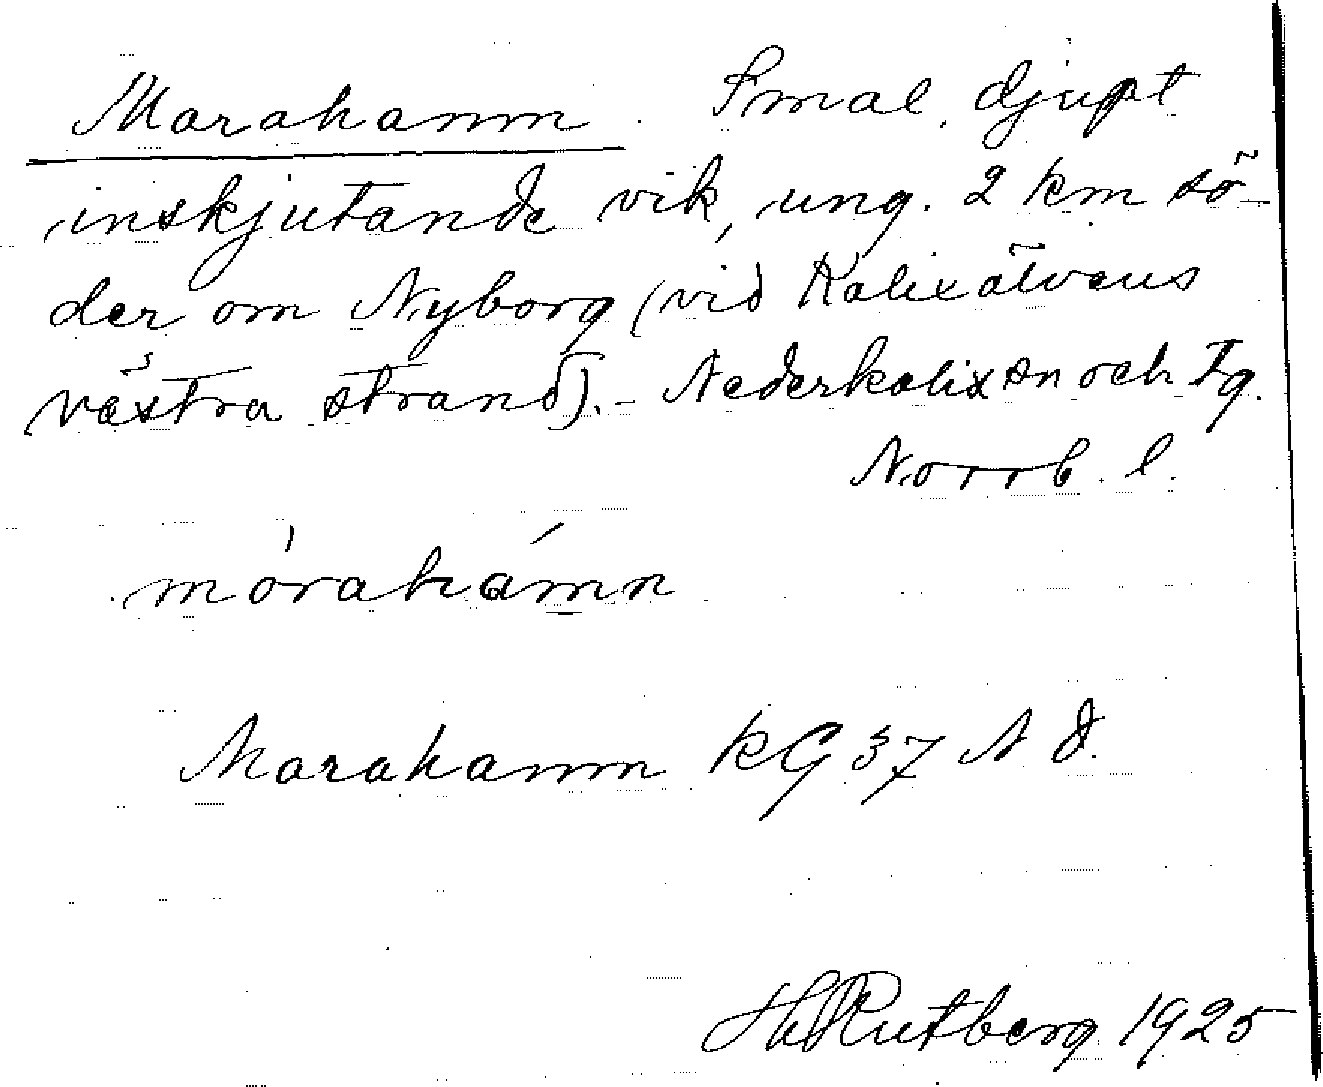 Marahamn. Smal, djupt
inskjutande vik, ung. 2 km sö-
der om Nyborg (vid Kalixälvens
västra strand). - Nederkalix sn och tg.
Norrb. l.
mórahámn
Marahamn KG 37 N d.
Rutberg 1925